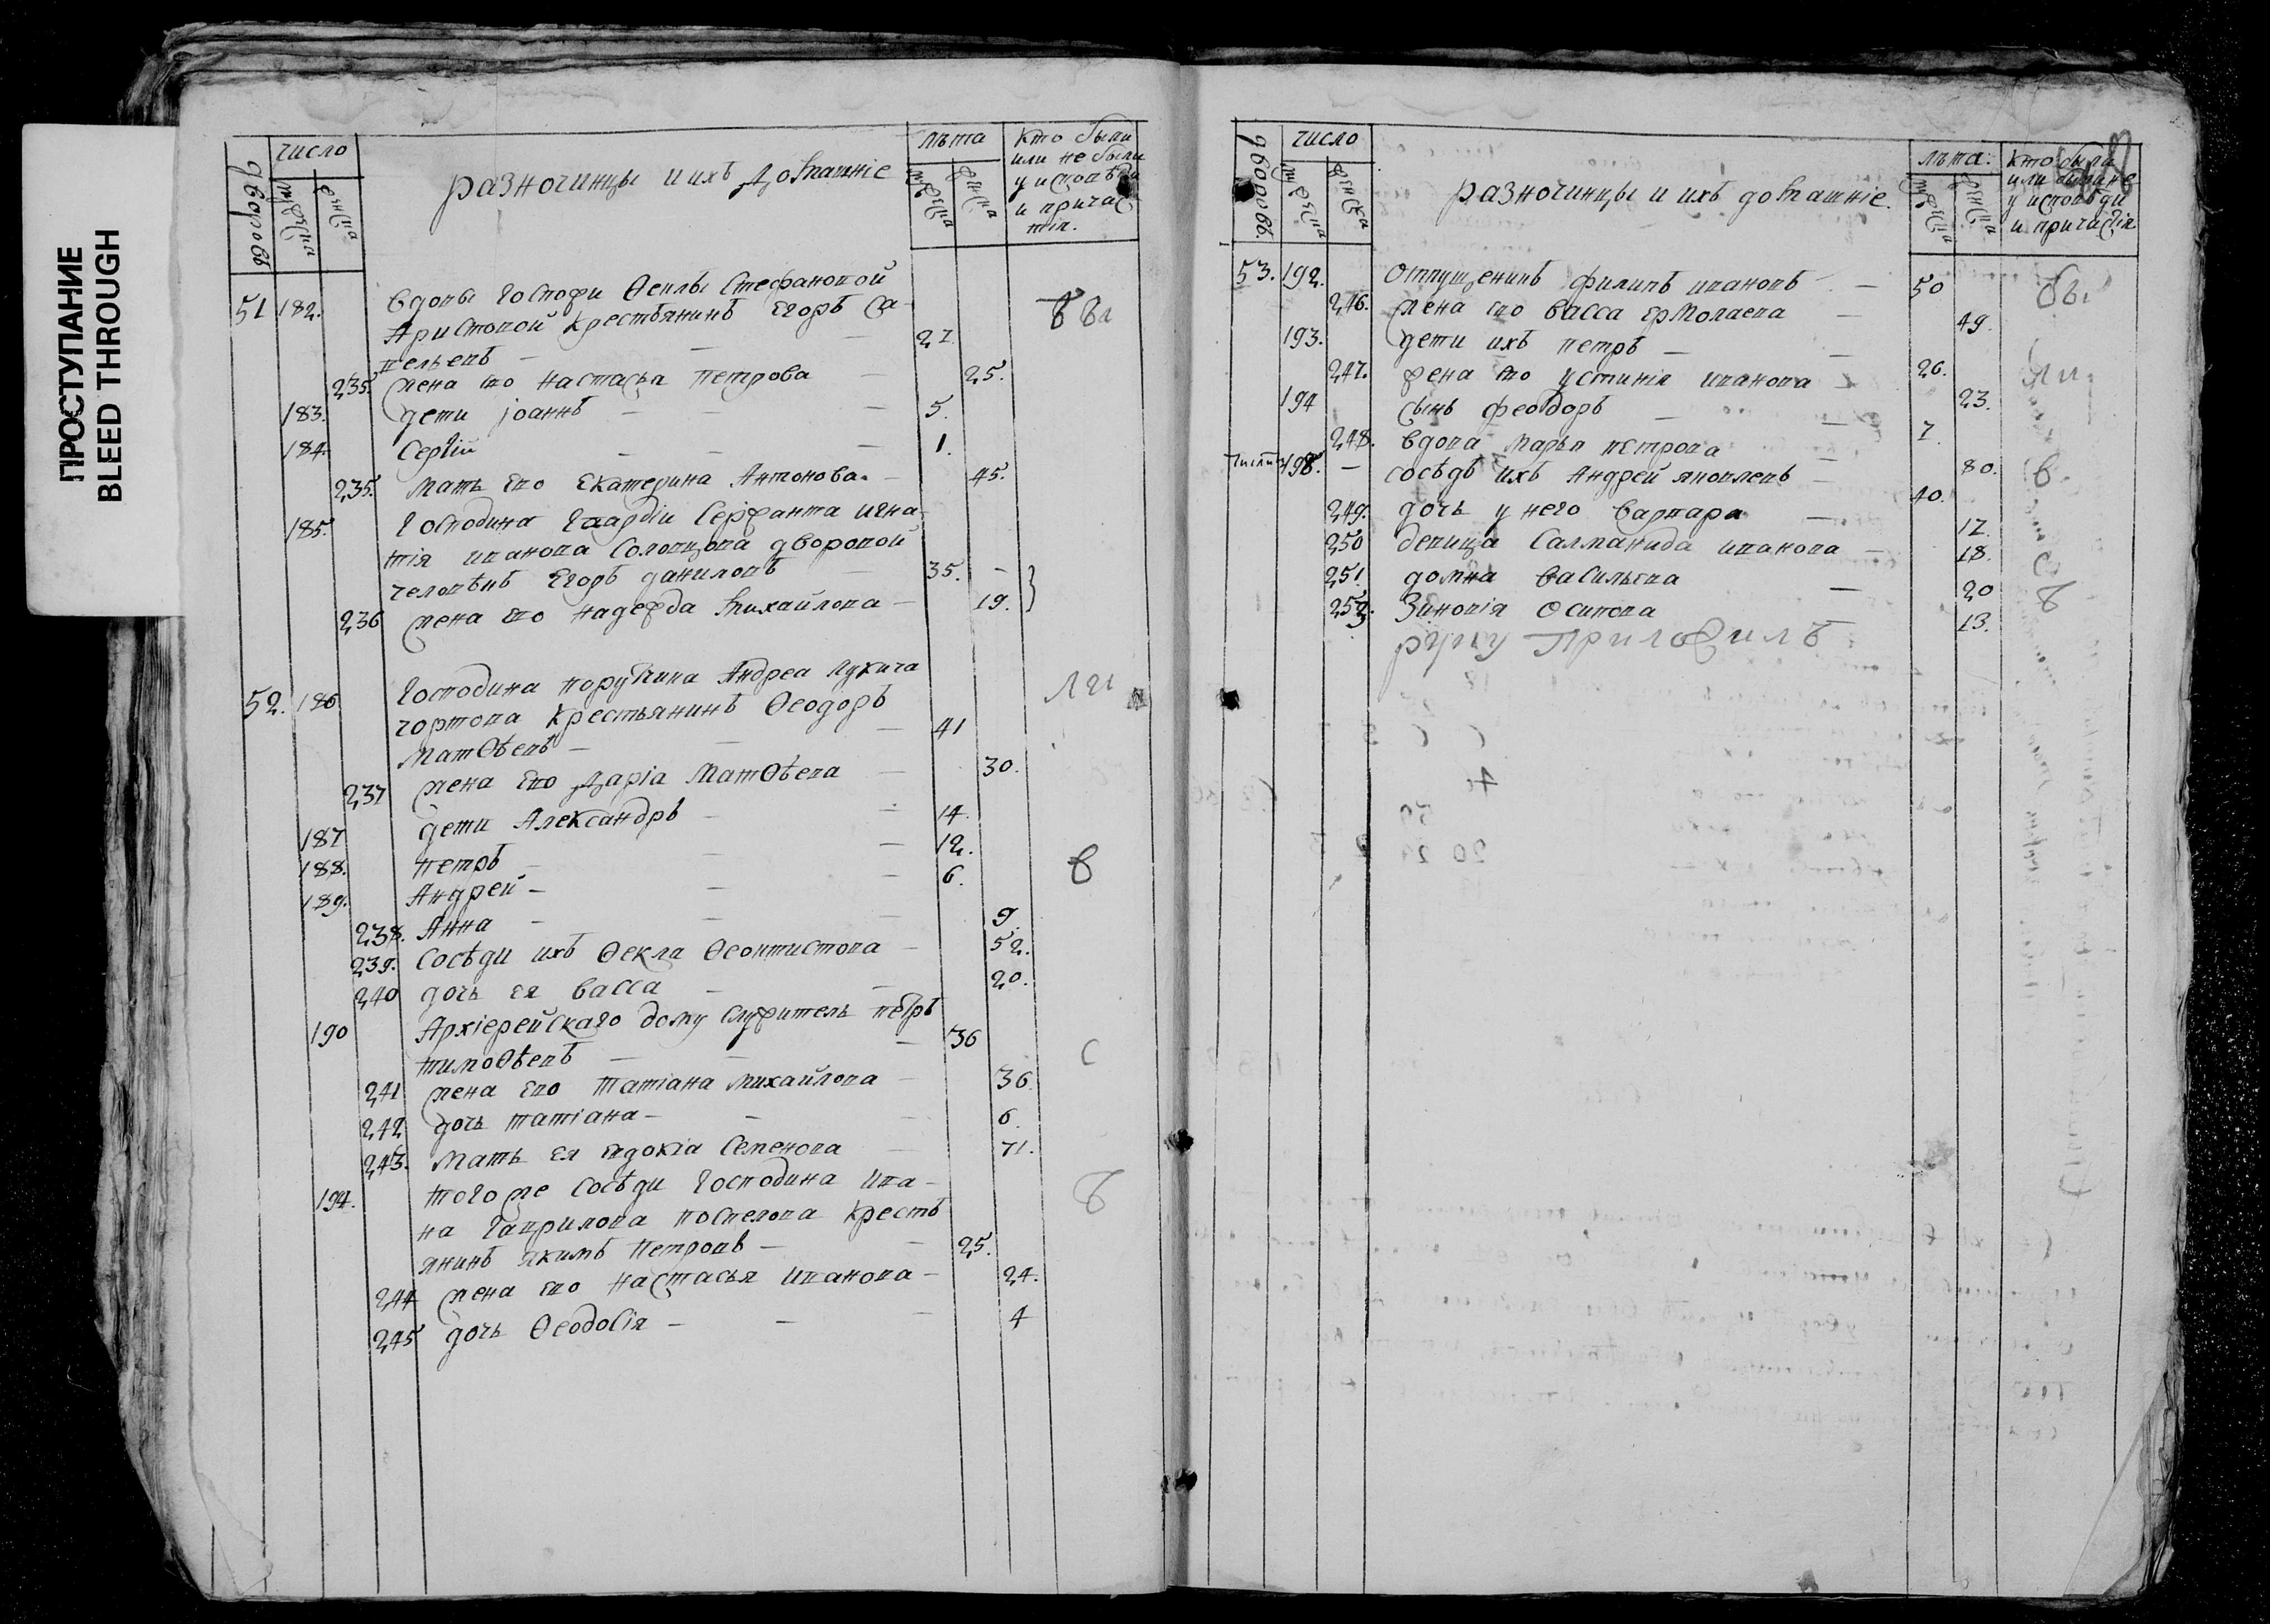 ПРОСТУПАНИЕ
BLEED THROUGH
дворовъ
число
мужеска
женска
разночинцы и ихъ домашніе
лѣта
мужеска
женска
кто были
или не были
у исповѣди
и причас
тія.
51 182. вдовы Госпожи Ѳеклы Стефановой
Аристовой крестьянинъ Егоръ Са
вельевъ — 27.
235. жена его настасья петрова — 25.
183. дети іоаннъ — 5.
184. Сергій — 1.
235. мать его Екатерина Антонова — 45.
185. Господина Гвардіи Сержанта игна
тія иванова Солопцова дворовой
человѣкъ Егоръ даниловъ — 35. —
236 жена его надежда михайлова — 19.
52. 186 Господина поручика Андреа лукича
чортова крестьянинъ Ѳеодоръ
матѳѣевъ — 41
237 жена его Даріа матѳѣева — 30.
187 дети Александръ — 14.
188. петръ — 12.
189. Андрей — 6.
238. Анна — 9.
239. Сосѣди ихъ Ѳекла Ѳеоктистова — 52.
240 дочь ея васса — 20.
190 Архіерейскаго дому служитель петръ
тимоѳѣевъ — 36
241 жена его татіана михайлова — 36.
242 дочь татіана — 6.
243. мать ея евдокіа Семенова 71.
194. тогоже сосѣди Господина ива
на гаврилова поспелова кресть
янинъ якимъ петровъ — 25.
244 жена его настасья иванова — 24.
245 дочь Ѳеодосія — 4
дворовъ.
число
мужеска
женска
разночинцы и ихъ домашніе.
лѣта.
мужеска
женска
кто были
или были не
у исповѣди
и причастія
53. 192. отпущеникъ филипъ ивановъ — 50
246. жена его васса ермолаева — 49.
193. дети ихъ петръ — 26.
247. жена его устинія иванова 23.
194 сынъ феодоръ — 7.
248. вдова марья петрова — 80.
195. — сосѣдъ ихъ Андрей яковлевъ — 40.
249. дочь у него варвара — 17.
250 девица Салманида иванова — 18.
251. домна васильева — 20
252. Зиновія осипова — 13.
руку приложилъ